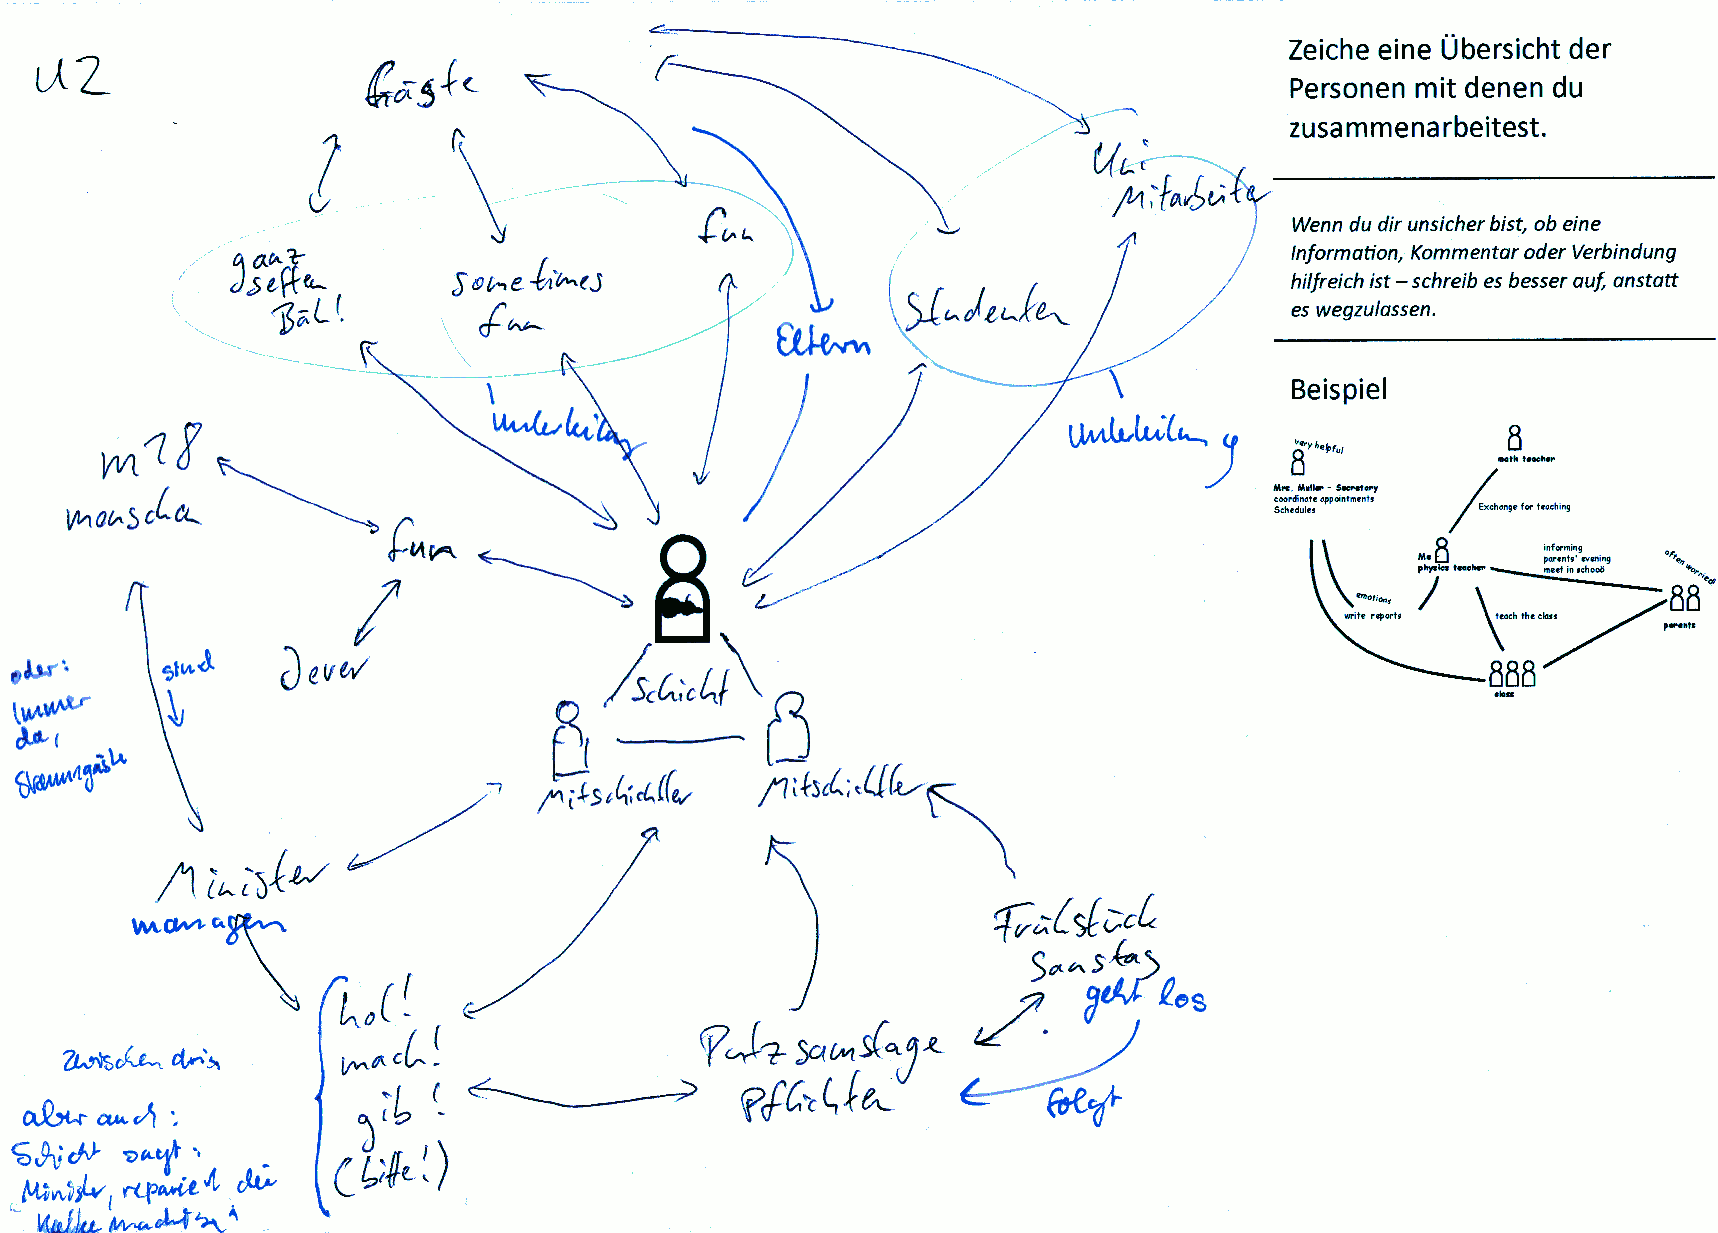 U2
Gäste
Uni
Mitarbeiter
fun
ganz
selten
Bäh!
sometimes
fun
Studenten
Eltern
Unterteilung
Unterteilung
m18
menschen
fun
Dever
oder:
immer
da,
Stammgäste
sind
Schicht
Mitschichtler
Mitschichtler
Minister
managen
Frühstück
Samstag
geht los
hol!
mach!
gib!
(bitte!)
Putzsamstage
Pflichten
folgt
zwischen drin
aber auch:
Schicht sagt:
"Minister, repariert die
Zeiche eine Übersicht der
Personen mit denen du
zusammenarbeitest.
Wenn du dir unsicher bist, ob eine
Information, Kommentar oder Verbindung
hilfreich ist – schreib es besser auf, anstatt
es wegzulassen.
Beispiel
very helpful
Mrs. Muller - Secretary
coordinate appointments
Schedules
math teacher
Exchange for teaching
Me
physics teacher
informing
parents' evening
meet in school
often worried
parents
emotions
write reports
teach the class
class